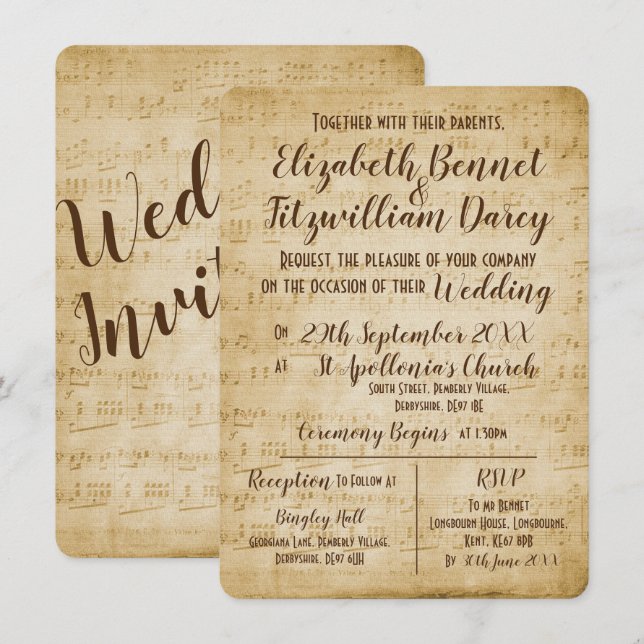 Wed
Invit
Together with their parents,
Elizabeth Bennet
&
Fitzwilliam Darcy
Request the pleasure of your company
on the occasion of their Wedding
On 29th September 20XX
at St Apollonia's Church
South Street, Pemberly Village,
Derbyshire, DE97 1BE
Ceremony Begins at 1.30pm
Reception To Follow At
Bingley Hall
Georgiana Lane, Pemberly Village,
Derbyshire, DE97 6UH
RSVP
To Mr Bennet
Longbourn House, Longbourne,
Kent, KE67 8PB
By 30th June 20XX